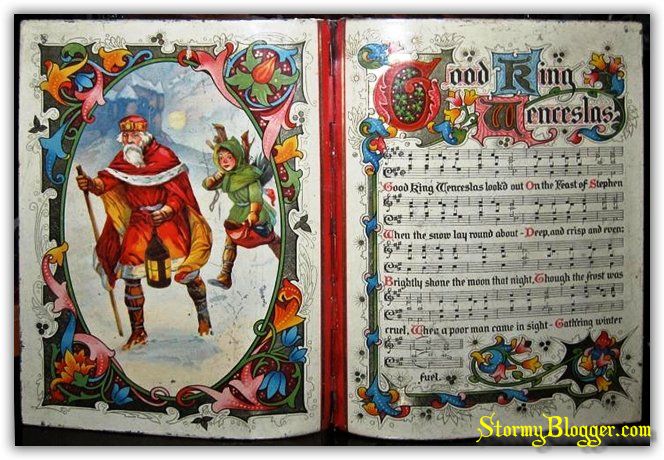 Good King
Wenceslas
Good King Wenceslas look'd out On the Feast of Stephen
When the snow lay round about - Deep, and crisp and even:
Brightly shone the moon that night, Though the frost was
cruel, When a poor man came in sight - Gath'ring winter
fuel.
StormyBlogger.com